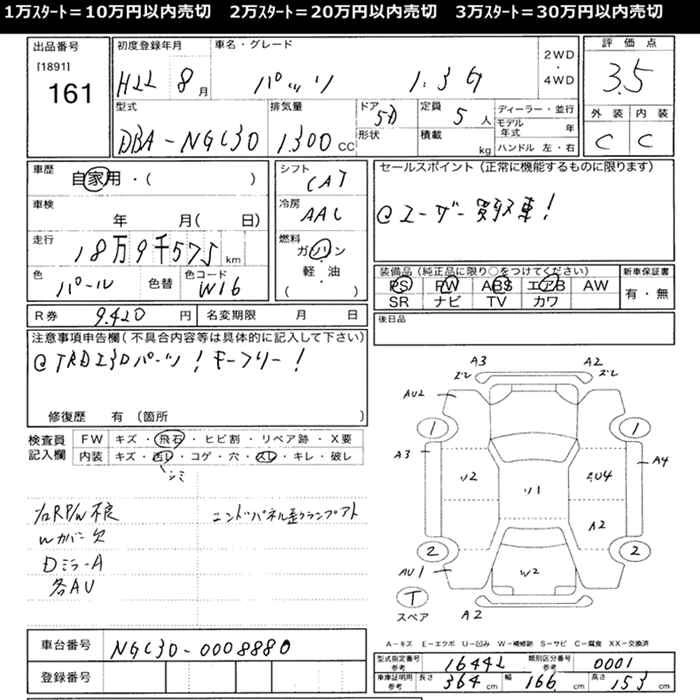 1万スタート=10万円以内売切　2万スタート=20万円以内売切　3万スタート=30万円以内売切
出品番号 [1891] 161
初度登録年月 H22 8月
車名・グレード パッソ 1.3G
2WD・4WD
評価点 3.5
外装 C 内装 C
型式 DBA-NGC30
排気量 1300 CC
ドア 5D 形状
定員 5人 積載 kg
ディーラー・並行
モデル年式 年
ハンドル 左・右
車歴 自家用・( )
車検 年 月( 日)
走行 18万9千575 km
色 パール 色替 色コード W16
シフト CAT
冷房 AAC
燃料 ガソリン・軽・油 ( )
セールスポイント(正常に機能するものに限ります)
@ユーザー買取車!
装備品(純正品に限り○をつけてください)
PS PW ABS エアB AW
SR ナビ TV カワ
新車保証書 有・無
R券 9.420 円 名変期限 月 日
後日品
注意事項申告欄(不具合内容等は具体的に記入して下さい)
@TRDエアロパーツ!キーフリー!
修復歴 有 (箇所 )
検査員記入欄
FW キズ・飛石・ヒビ割・リペア跡・X要
内装 キズ・西レ・コゲ・穴・スレ・キレ・破レ
シミ
Wカバー欠
Dミラー A
各AU
A3 A2
ズレ ズレ
AU2
1 1
A3 A4
U2 U1
A2
2 2
AU1 W2
T
スペア A2
A-キズ E-エクボ U-凹み W-補修跡 S-サビ C-腐食 XX-交換済
車台番号 NGC30-0008880
登録番号
型式指定番号 参考 16442 類別区分番号 参考 0001
車庫証明用 参考 長さ 364 cm 幅 166 cm 高さ 153 cm